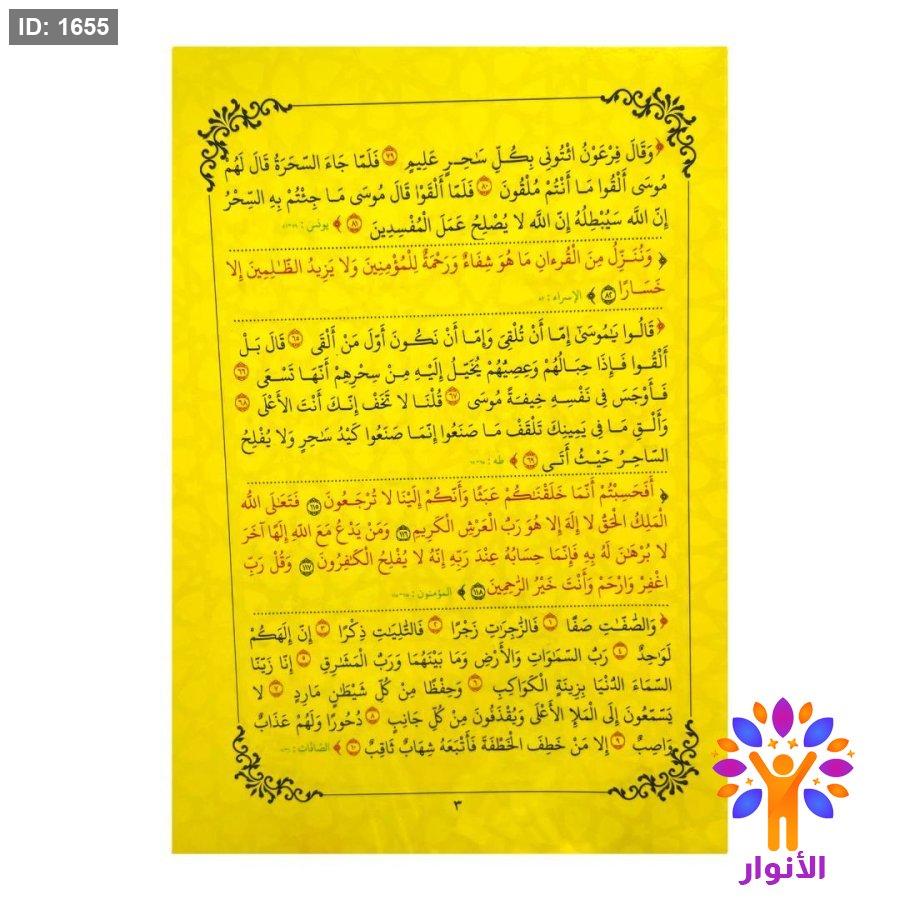 ID: 1655
﴿وَقَالَ فِرْعَوْنُ ائْتُونِي بِكُلِّ سَاحِرٍ عَلِيمٍ ٧٩ فَلَمَّا جَاءَ السَّحَرَةُ قَالَ لَهُم
مُوسَى أَلْقُوا مَا أَنْتُمْ مُلْقُونَ ٨٠ فَلَمَّا أَلْقَوْا قَالَ مُوسَى مَا جِئْتُمْ بِهِ السِّحْرُ
إِنَّ اللَّه سَيُبْطِلُهُ إِنَّ اللَّه لا يُصْلِحُ عَمَلَ الْمُفْسِدِينَ ٨١ ﴾ يونس :
﴿ وَنُنَزِّلُ مِنَ الْقُرءانِ مَا هُوَ شِفَاءٌ وَرَحْمَةٌ لِلْمُؤْمِنِينَ وَلا يَزِيدُ الظَّـٰلِمِينَ إِلا
خَسَارًا ٨٢ ﴾ الإسراء : ٨٢
﴿قَالُوا يَـٰمُوسَىٰ إِمَّا أَنْ تُلْقِيَ وَإِمَّا أَنْ نَكُونَ أَوَّلَ مَنْ أَلْقَى ٦٥ قَالَ بَلْ
أَلْقُوا فَإِذَا حِبَالُهُمْ وَعِصِيُّهُمْ يُخَيَّلُ إِلَيْهِ مِنْ سِحْرِهِمْ أَنَّهَا تَسْعَى ٦٦
فَأَوْجَسَ فِي نَفْسِهِ خِيفَةً مُوسَى ٦٧ قُلْنَا لا تَخَفْ إِنَّكَ أَنْتَ الأَعْلَى ٦٨
وَأَلْقِ مَا فِي يَمِينِكَ تَلْقَفْ مَا صَنَعُوا إِنَّمَا صَنَعُوا كَيْدُ سَاحِرٍ وَلا يُفْلِحُ
السَّاحِرُ حَيْثُ أَتَى ٦٩ ﴾ طه :
﴿ أَفَحَسِبْتُمْ أَنَّمَا خَلَقْنَاكُمْ عَبَثًا وَأَنَّكُمْ إِلَيْنَا لا تُرْجَعُونَ ١١٥ فَتَعَالَى اللَّهُ
الْمَلِكُ الْحَقُّ لا إِلَهَ إِلا هُوَ رَبُّ الْعَرْشِ الْكَرِيمِ ١١٦ وَمَنْ يَدْعُ مَعَ اللَّهِ إِلَهًا آخَرَ
لا بُرْهَانَ لَهُ بِهِ فَإِنَّمَا حِسَابُهُ عِنْدَ رَبِّهِ إِنَّهُ لا يُفْلِحُ الْكَافِرُونَ ١١٧ وَقُلْ رَبِّ
اغْفِرْ وَارْحَمْ وَأَنْتَ خَيْرُ الرَّاحِمِينَ ١١٨ ﴾ المؤمنون :
﴿ وَالصَّافَّاتِ صَفًّا ١ فَالزَّاجِرَاتِ زَجْرًا ٢ فَالتَّالِيَاتِ ذِكْرًا ٣ إِنَّ إِلَهَكُمْ
لَوَاحِدٌ ٤ رَبُّ السَّمَاوَاتِ وَالأَرْضِ وَمَا بَيْنَهُمَا وَرَبُّ الْمَشَارِقِ ٥ إِنَّا زَيَّنَّا
السَّمَاءَ الدُّنْيَا بِزِينَةٍ الْكَوَاكِبِ ٦ وَحِفْظًا مِنْ كُلِّ شَيْطَانٍ مَارِدٍ ٧ لا
يَسَّمَّعُونَ إِلَى الْمَلإِ الأَعْلَى وَيُقْذَفُونَ مِنْ كُلِّ جَانِبٍ ٨ دُحُورًا وَلَهُمْ عَذَابٌ
وَاصِبٌ ٩ إِلا مَنْ خَطِفَ الْخَطْفَةَ فَأَتْبَعَهُ شِهَابٌ ثَاقِبٌ ١٠ ﴾ الصافات :
٣
الأنوار